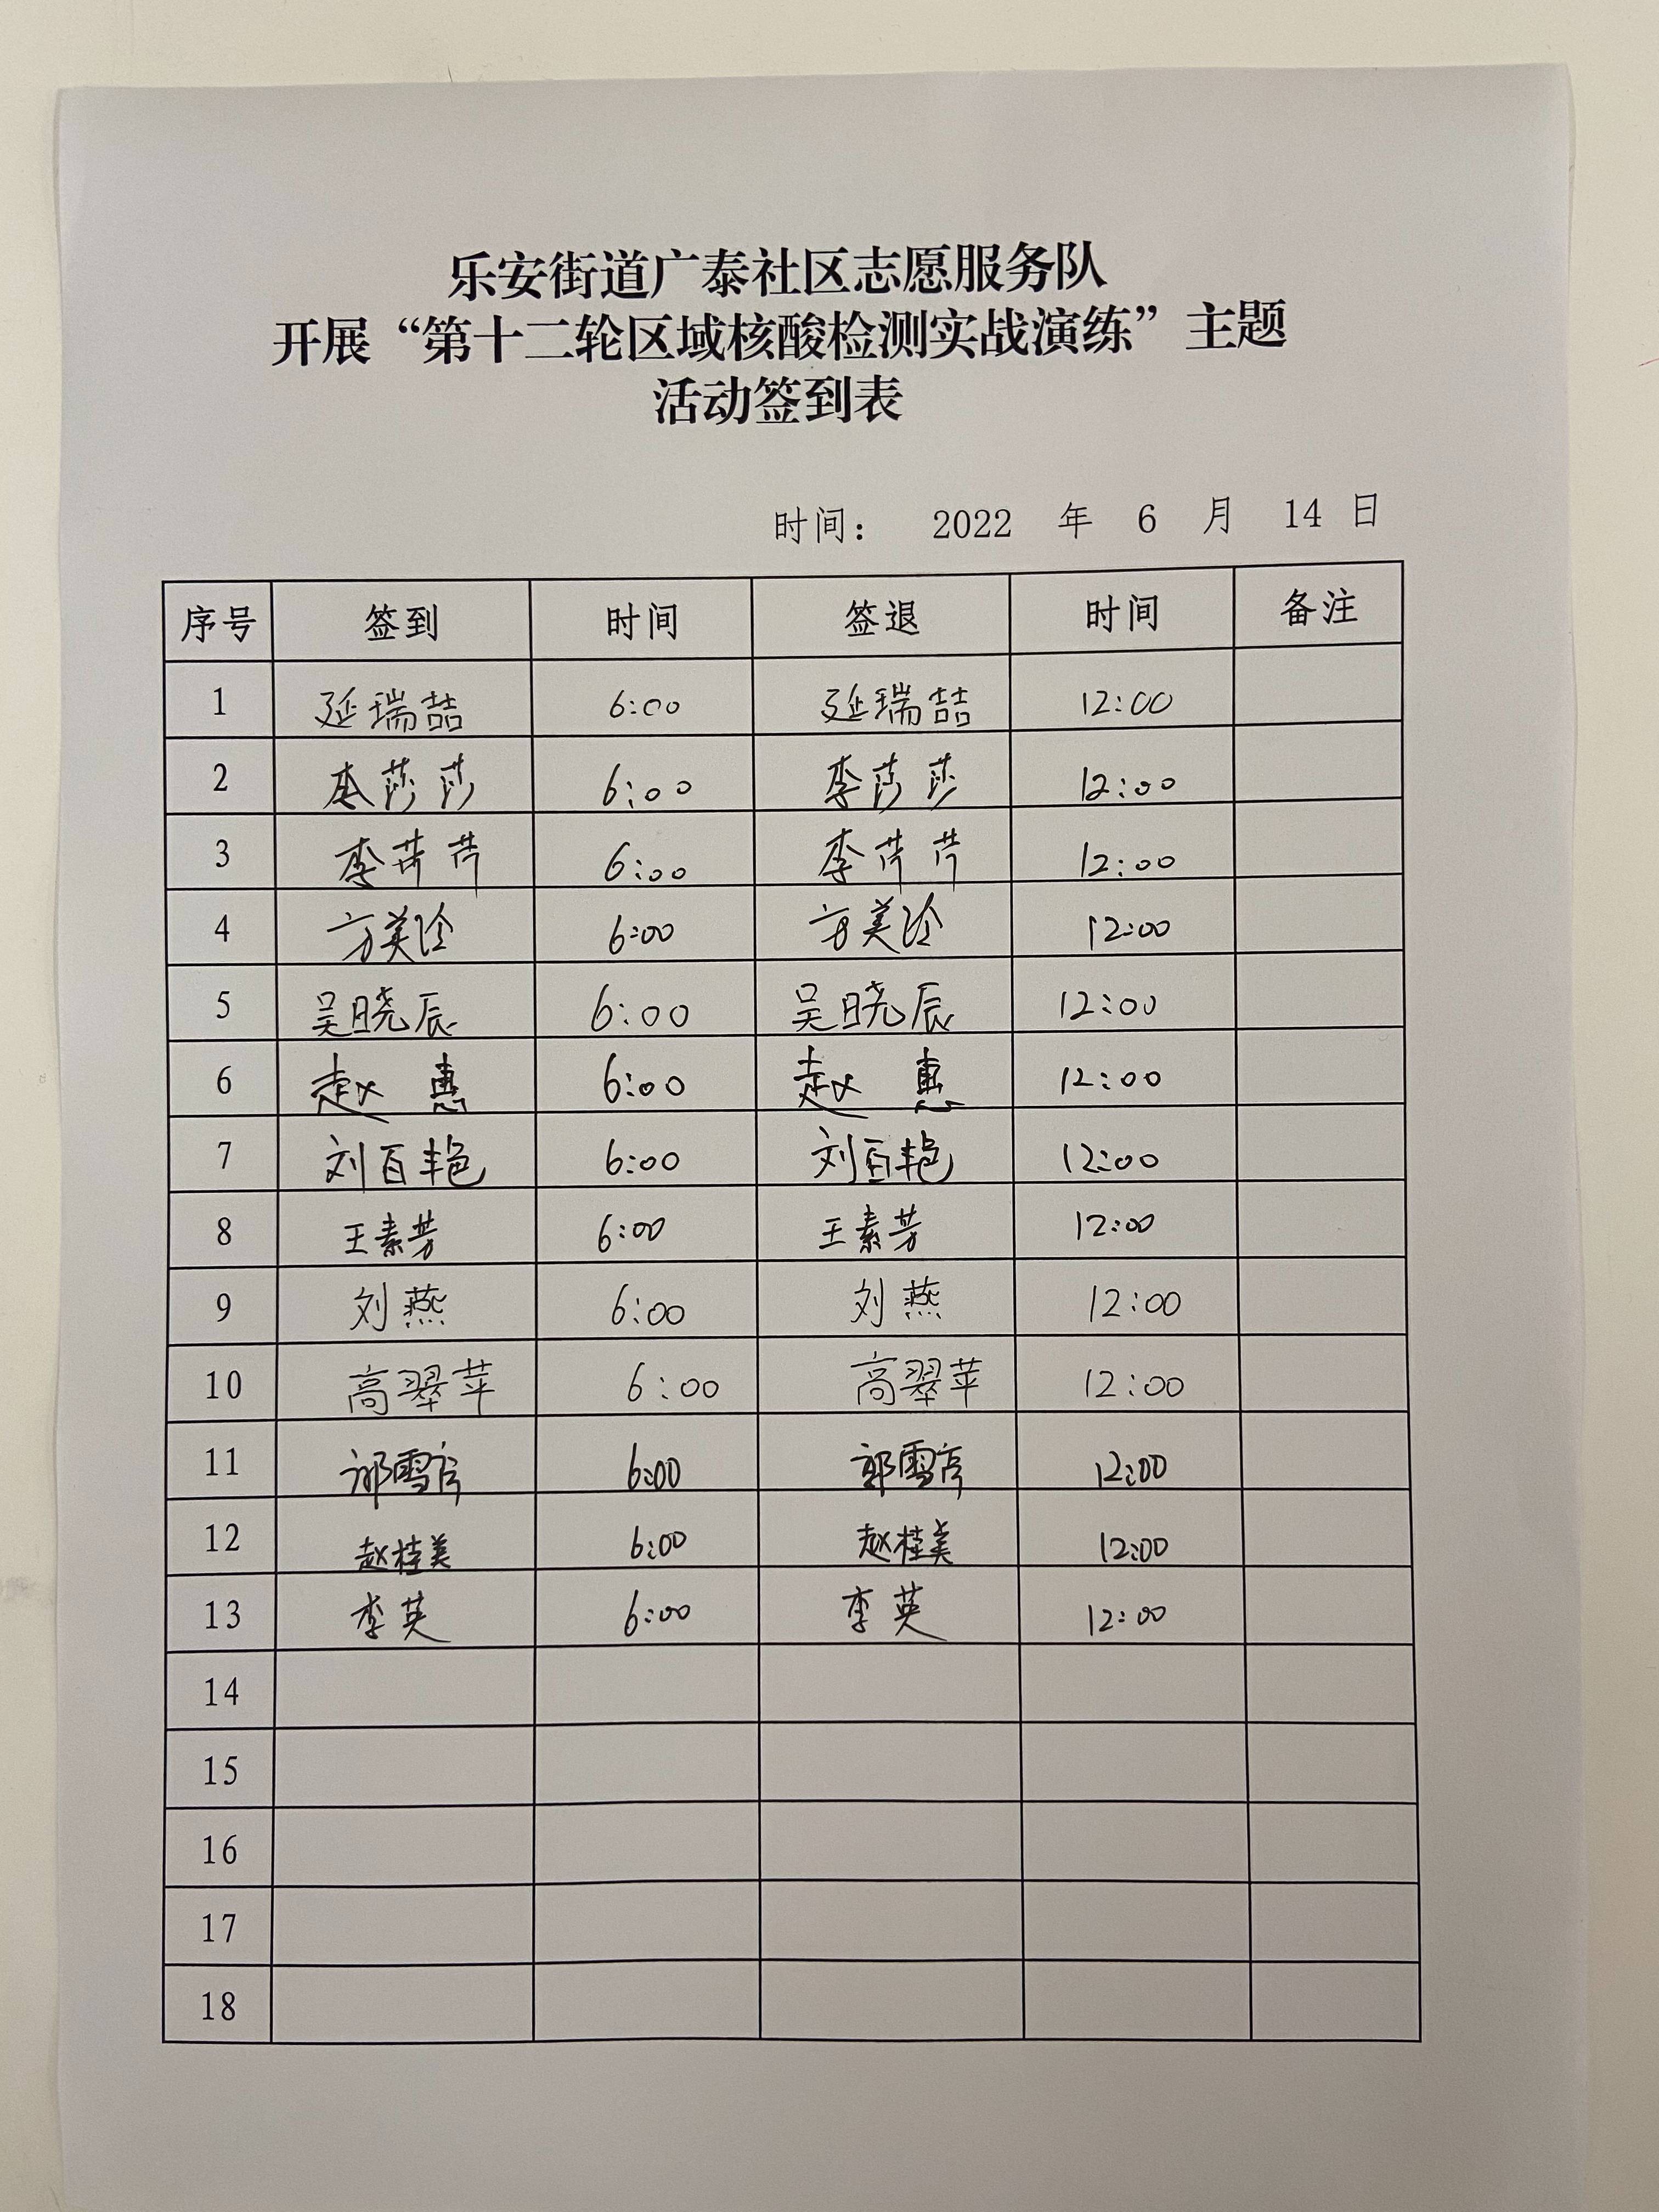 乐安街道广泰社区志愿服务队
开展“第十二轮区域核酸检测实战演练”主题
活动签到表
时间： 2022 年 6 月 14 日
序号 签到 时间 签退 时间 备注
1 延瑞喆 6:00 延瑞喆 12:00
2 李莎莎 6:00 李莎莎 12:00
3 李芹芹 6:00 李芹芹 12:00
4 方美玲 6:00 方美玲 12:00
5 吴晓辰 6:00 吴晓辰 12:00
6 赵惠 6:00 赵惠 12:00
7 刘百艳 6:00 刘百艳 12:00
8 王素芳 6:00 王素芳 12:00
9 刘燕 6:00 刘燕 12:00
10 高翠苹 6:00 高翠苹 12:00
11 郭雪彦 6:00 郭雪彦 12:00
12 赵桂美 6:00 赵桂美 12:00
13 李英 6:00 李英 12:00
14
15
16
17
18